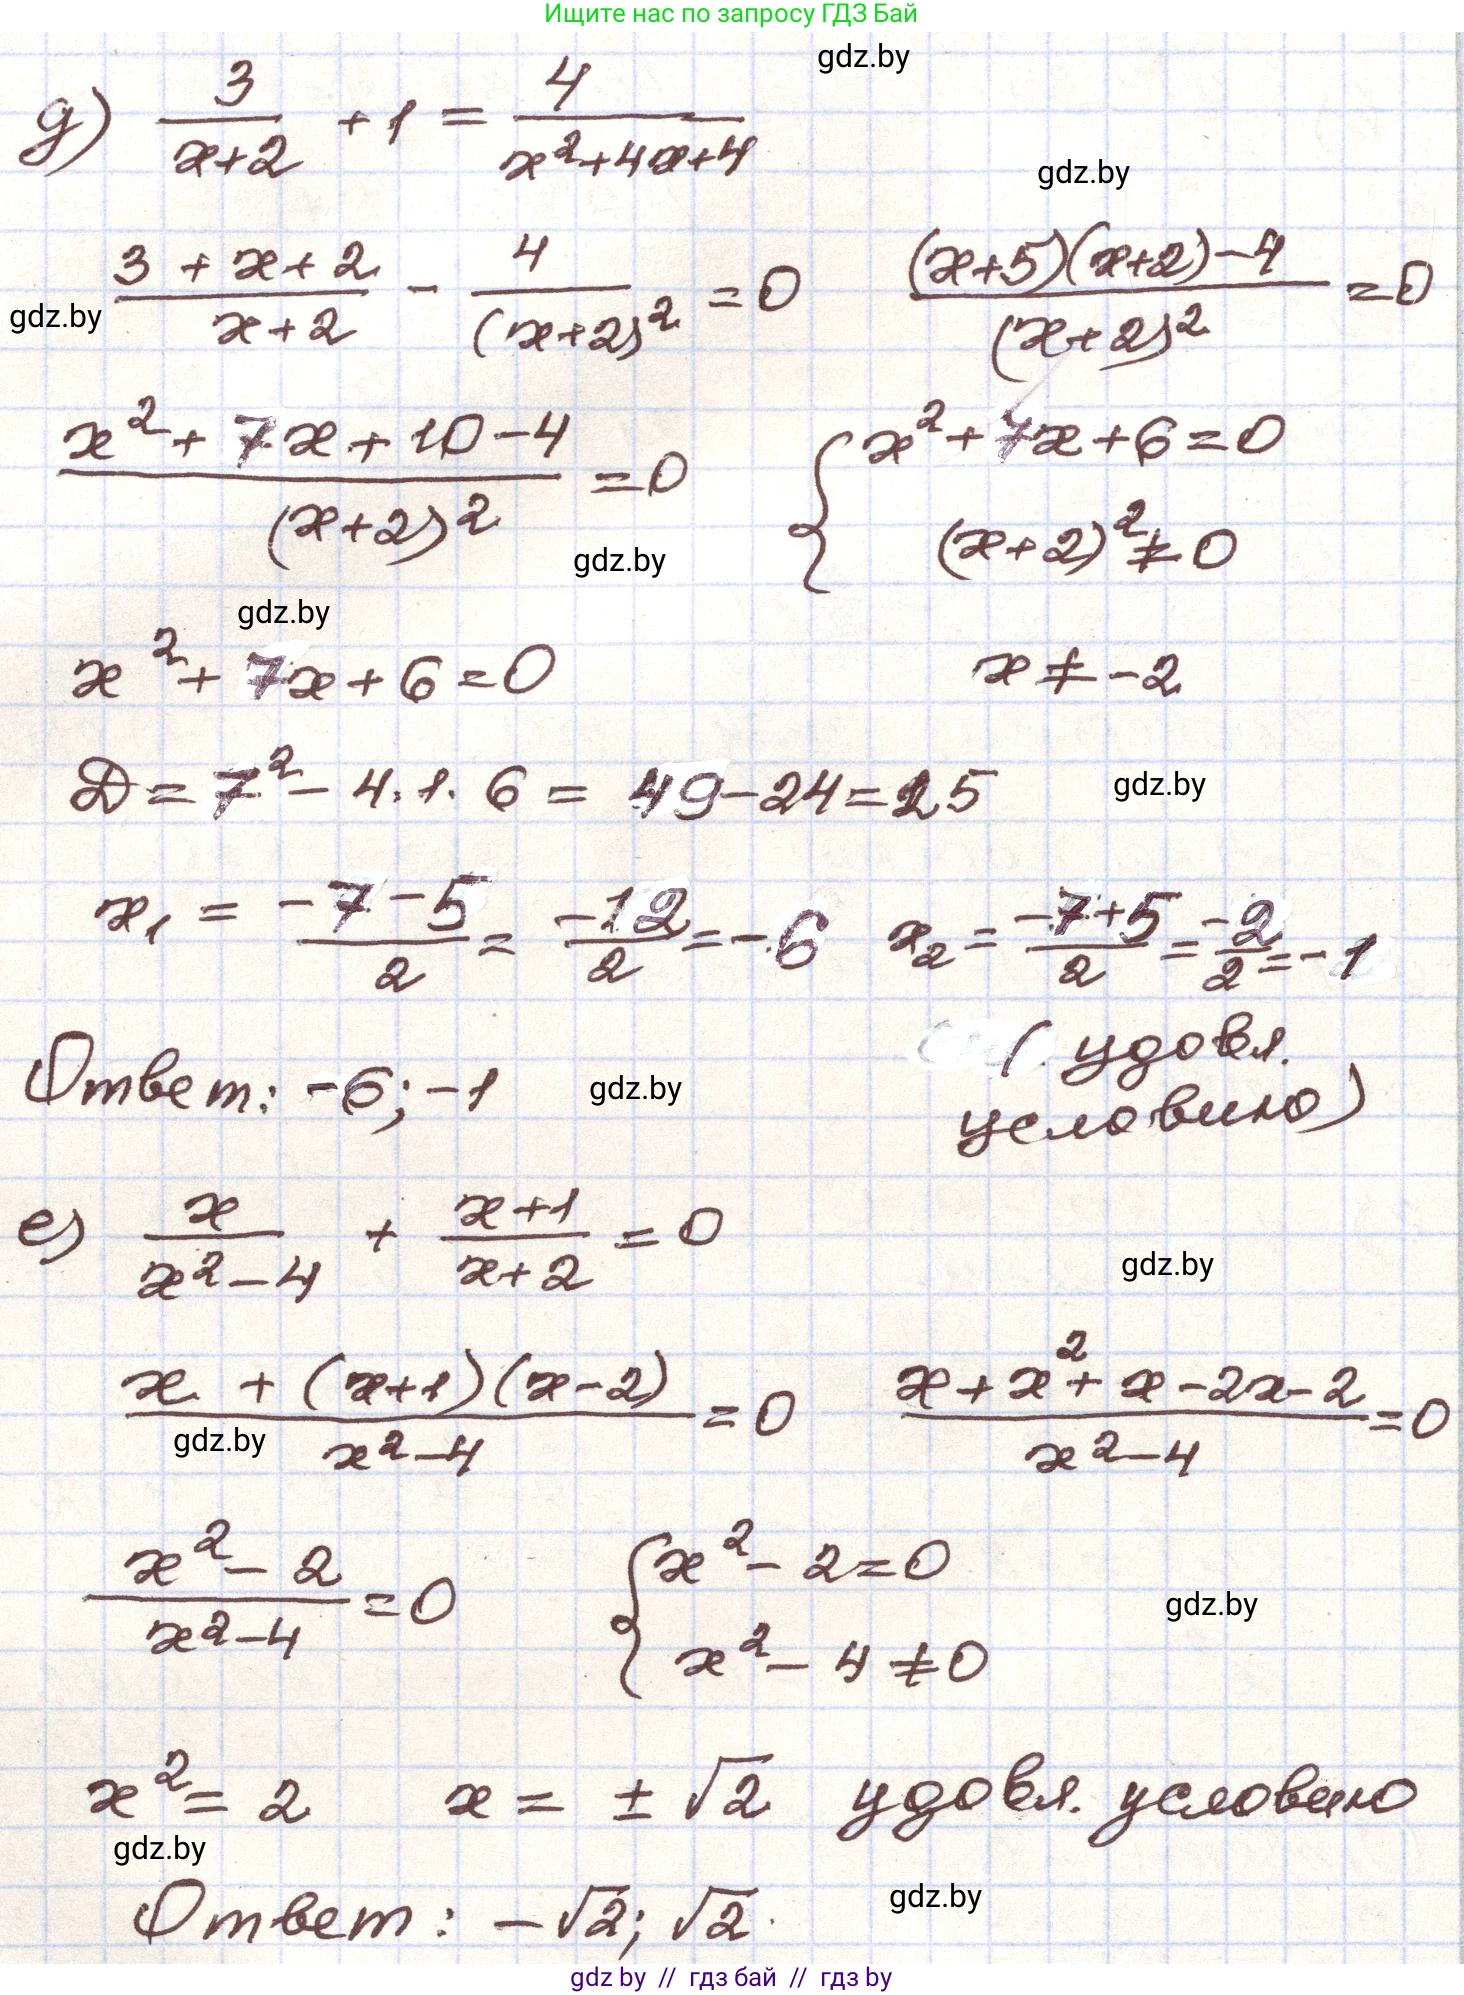 Ищите нас по запросу ГДЗ Бай
gdz.by
д) 3/(x+2) + 1 = 4/(x²+4x+4)
gdz.by
(3+x+2)/(x+2) - 4/(x+2)² = 0   ((x+5)(x+2)-4)/(x+2)² = 0
gdz.by
(x²+7x+10-4)/(x+2)² = 0   { x²+7x+6=0
(x+2)² ≠ 0
gdz.by
gdz.by
x²+7x+6=0   x ≠ -2
D = 7² - 4·1·6 = 49-24=25
gdz.by
x₁ = (-7-5)/2 = -12/2 = -6   x₂ = (-7+5)/2 = -2/2 = -1
Ответ: -6; -1   (удовл.
условию)
gdz.by
е) x/(x²-4) + (x+1)/(x+2) = 0
gdz.by
(x+(x+1)(x-2))/(x²-4) = 0   (x+x²+x-2x-2)/(x²-4) = 0
gdz.by
(x²-2)/(x²-4) = 0   { x²-2=0
x²-4≠0
gdz.by
x²=2   x = ±√2 удовл. условию
gdz.by
Ответ: -√2; √2.
gdz.by
gdz by // гдз бай // гдз by